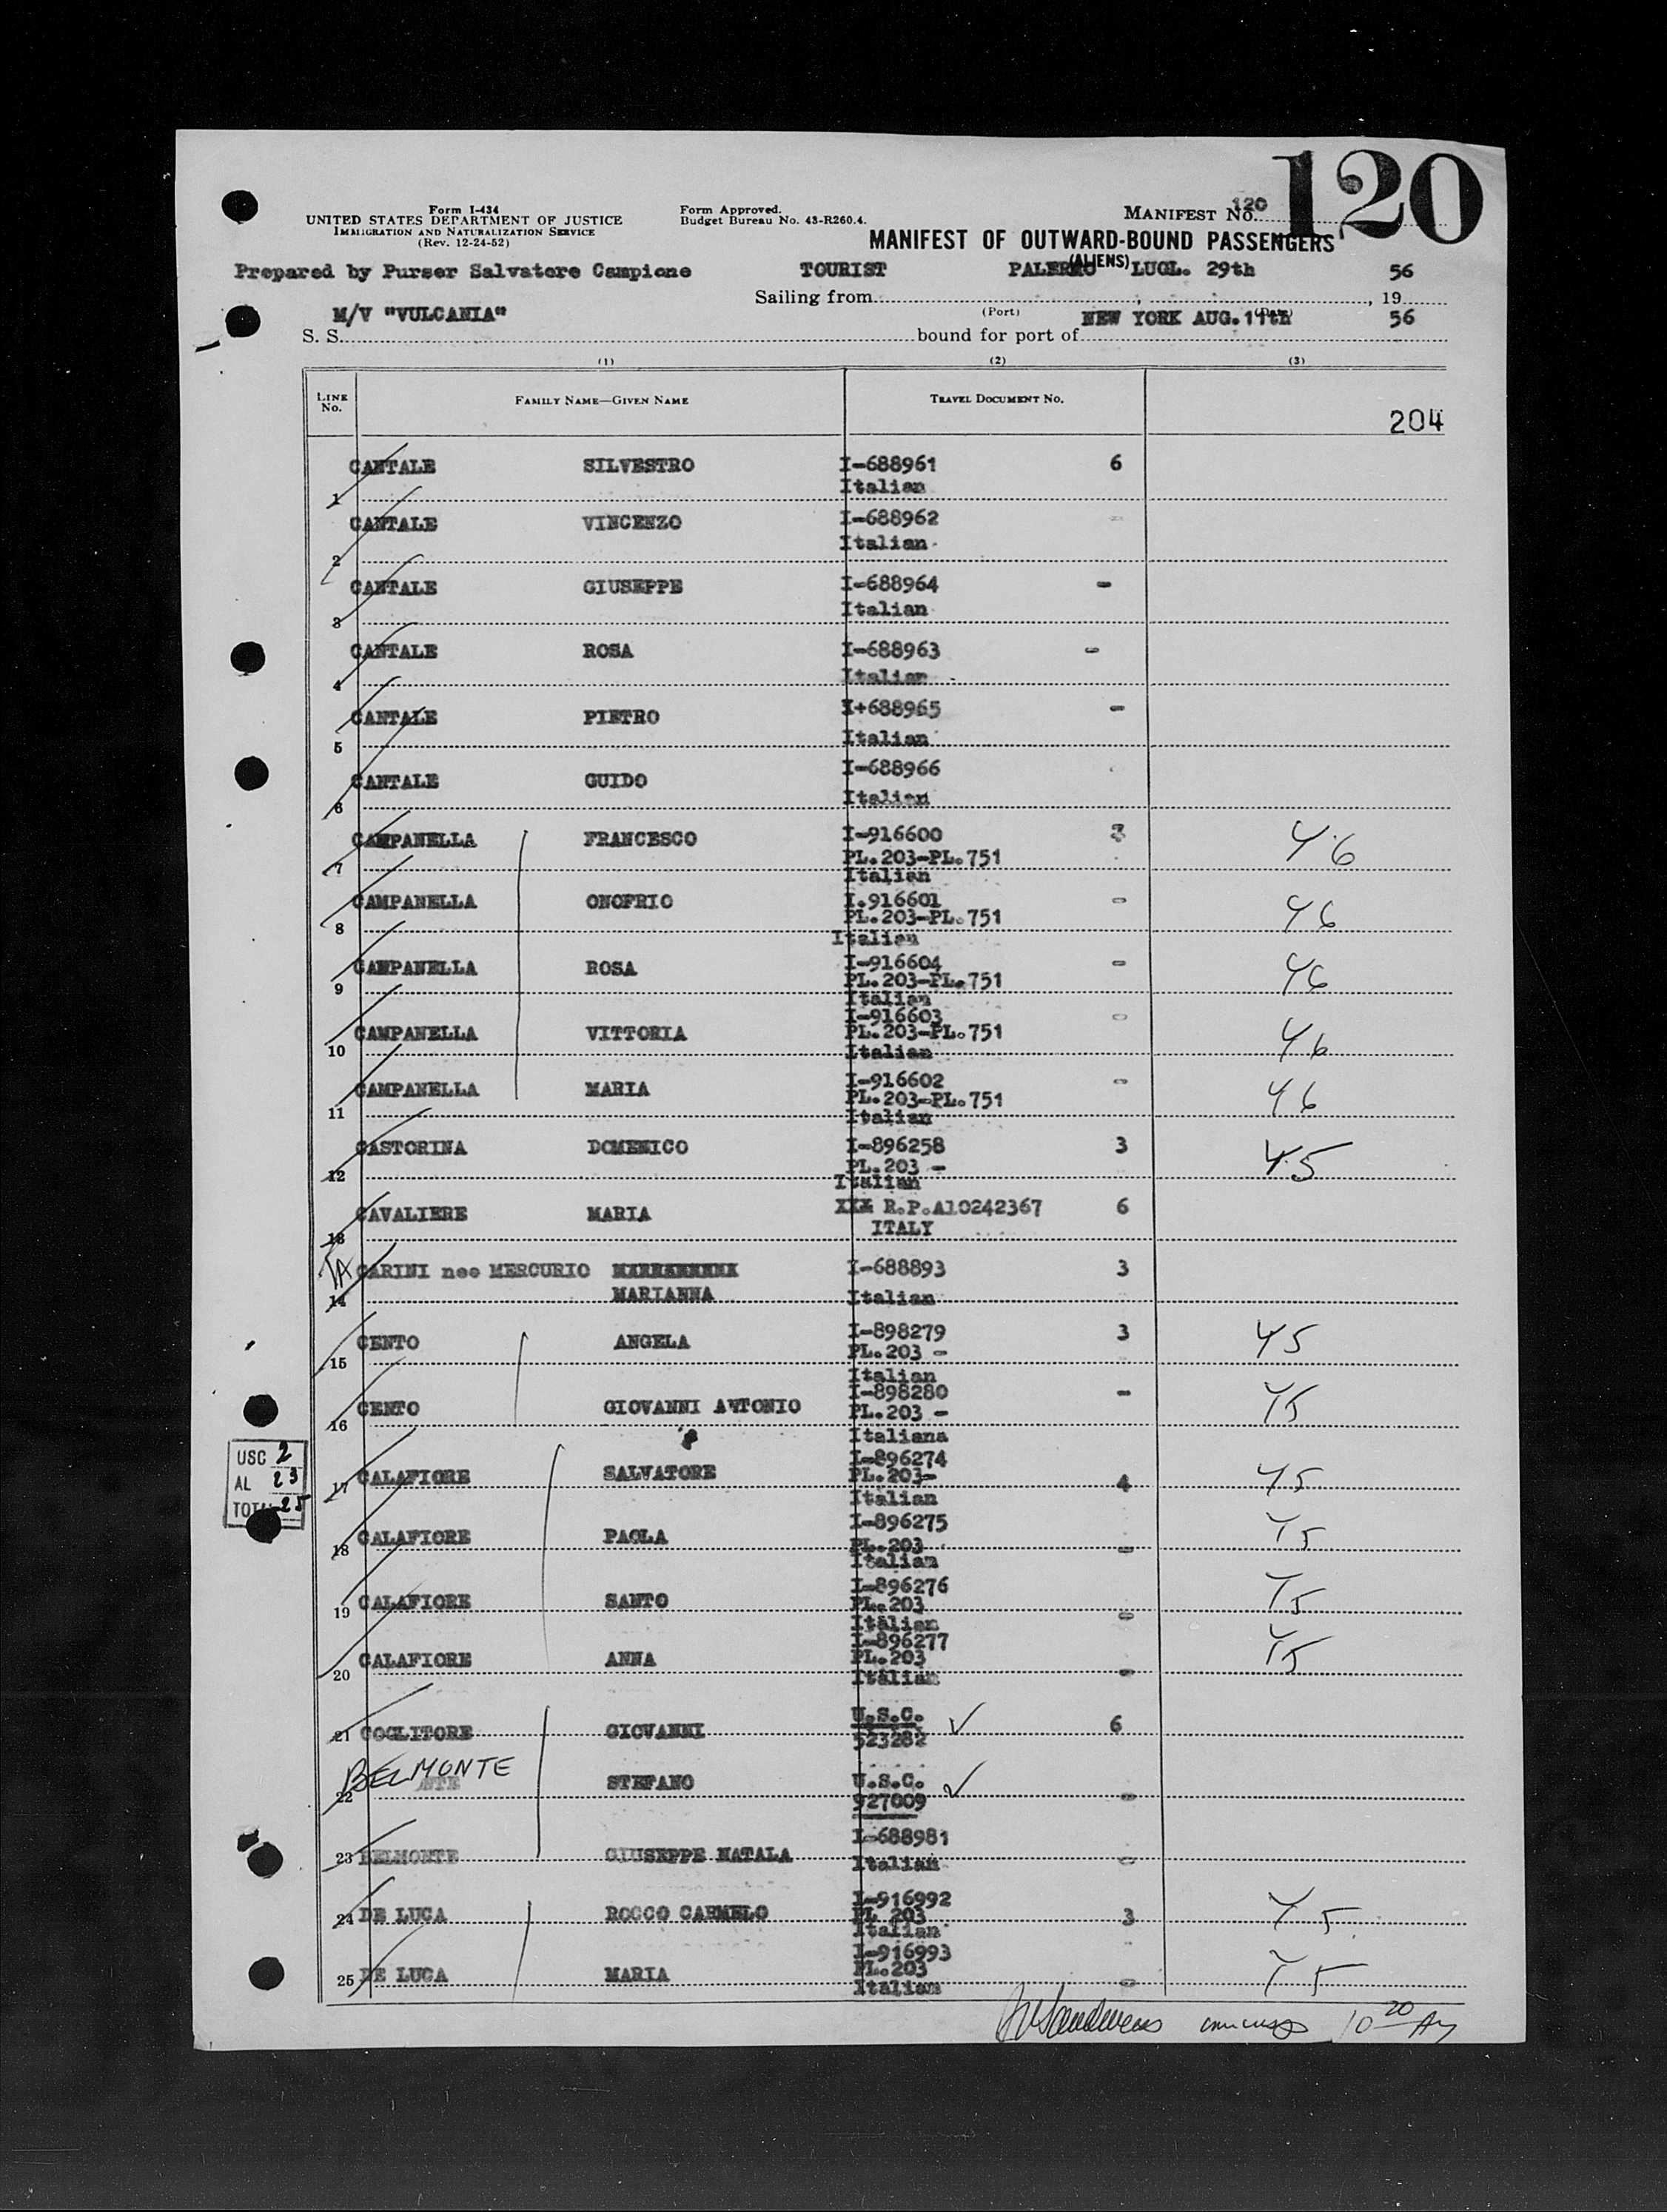 120
Form I-434
UNITED STATES DEPARTMENT OF JUSTICE
IMMIGRATION AND NATURALIZATION SERVICE
(Rev. 12-24-52)
Form Approved.
Budget Bureau No. 43-R260.4.
MANIFEST NO. 120
MANIFEST OF OUTWARD-BOUND PASSENGERS
(ALIENS)
Prepared by Purser Salvatore Campione TOURIST PALERMO LUGL. 29th 56
Sailing from , , 19
M/V "VULCANIA" (Port) NEW YORK AUG. 11th 56
S. S. bound for port of
(1) (2) (3)
LINE No. FAMILY NAME—GIVEN NAME TRAVEL DOCUMENT NO. 204
CANTALE SILVESTRO I-688961 6
1 Italian
CANTALE VINCENZO I-688962 -
2 Italian
CANTALE GIUSEPPE I-688964 -
3 Italian
CANTALE ROSA I-688963 -
4 Italian
CANTALE PIETRO I+688965 -
5 Italian
CANTALE GUIDO I-688966
6 Italian
CAMPANELLA FRANCESCO I-916600 46
PL.203-PL.751
7 Italian
CAMPANELLA ONOFRIO I.916601 - 46
PL.203-PL.751
8 Italian
CAMPANELLA ROSA I-916604 - 46
PL.203-PL.751
9 Italian
CAMPANELLA VITTORIA I-916603 - 46
PL.203-PL.751
10 Italian
CAMPANELLA MARIA I-916602 - 46
PL.203-PL.751
11 Italian
CASTORINA DOMENICO I-896258 3 45
PL.203 -
12 Italian
CAVALIERE MARIA XXX R.P.A10242367 6
13 ITALY
CARINI nee MERCURIO I-688893 3
14 MARIANNA Italian
CENTO ANGELA I-898279 3 45
15 PL.203 -
Italian
CENTO GIOVANNI ANTONIO I-898280 - 45
16 PL.203 -
Italiana
17 CALAFIORE SALVATORE I-896274 4 45
PL.203-
Italian
18 CALAFIORE PAOLA I-896275 - 45
PL.203
Italian
19 CALAFIORE SANTO I-896276 - 45
PL.203
Italian
20 CALAFIORE ANNA I-896277 - 45
PL.203
Italian
21 COGLITORE GIOVANNI U.S.C. ✓ 6
523282
BELMONTE
22 STEFANO U.S.C. ✓ -
927009
23 BELMONTE GIUSEPPE NATALA I-688981 -
Italian
24 DE LUCA ROCCO CARMELO I-916992 3 45
PL 203
Italian
25 DE LUCA MARIA I-916993 - 45
PL.203
Italian
USC 2
AL 23
TOTAL 25
10 20 AM